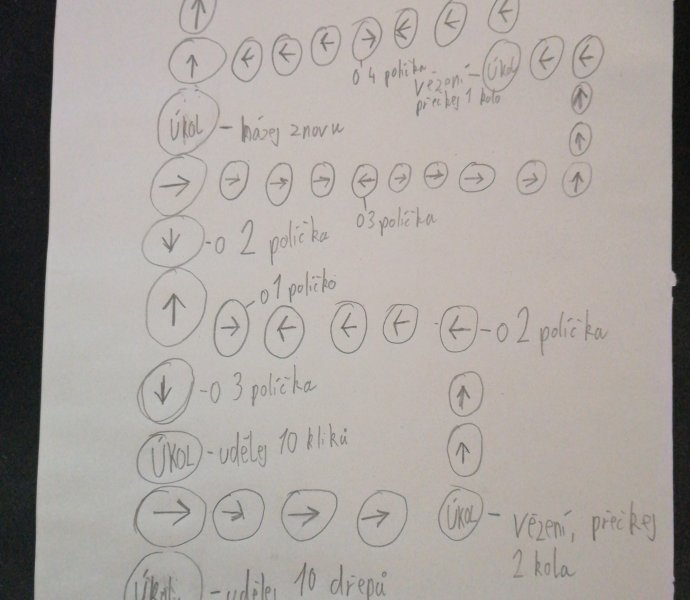 o 4 políčka
ÚKOL
Vězení
přečkej 1 kolo
ÚKOL - házej znovu
o 3 políčka
- o 2 políčka
- o 1 políčko
- o 2 políčka
- o 3 políčka
ÚKOL - udělej 10 kliků
ÚKOL - vězení, přečkej
2 kola
ÚKOL - udělej 10 dřepů